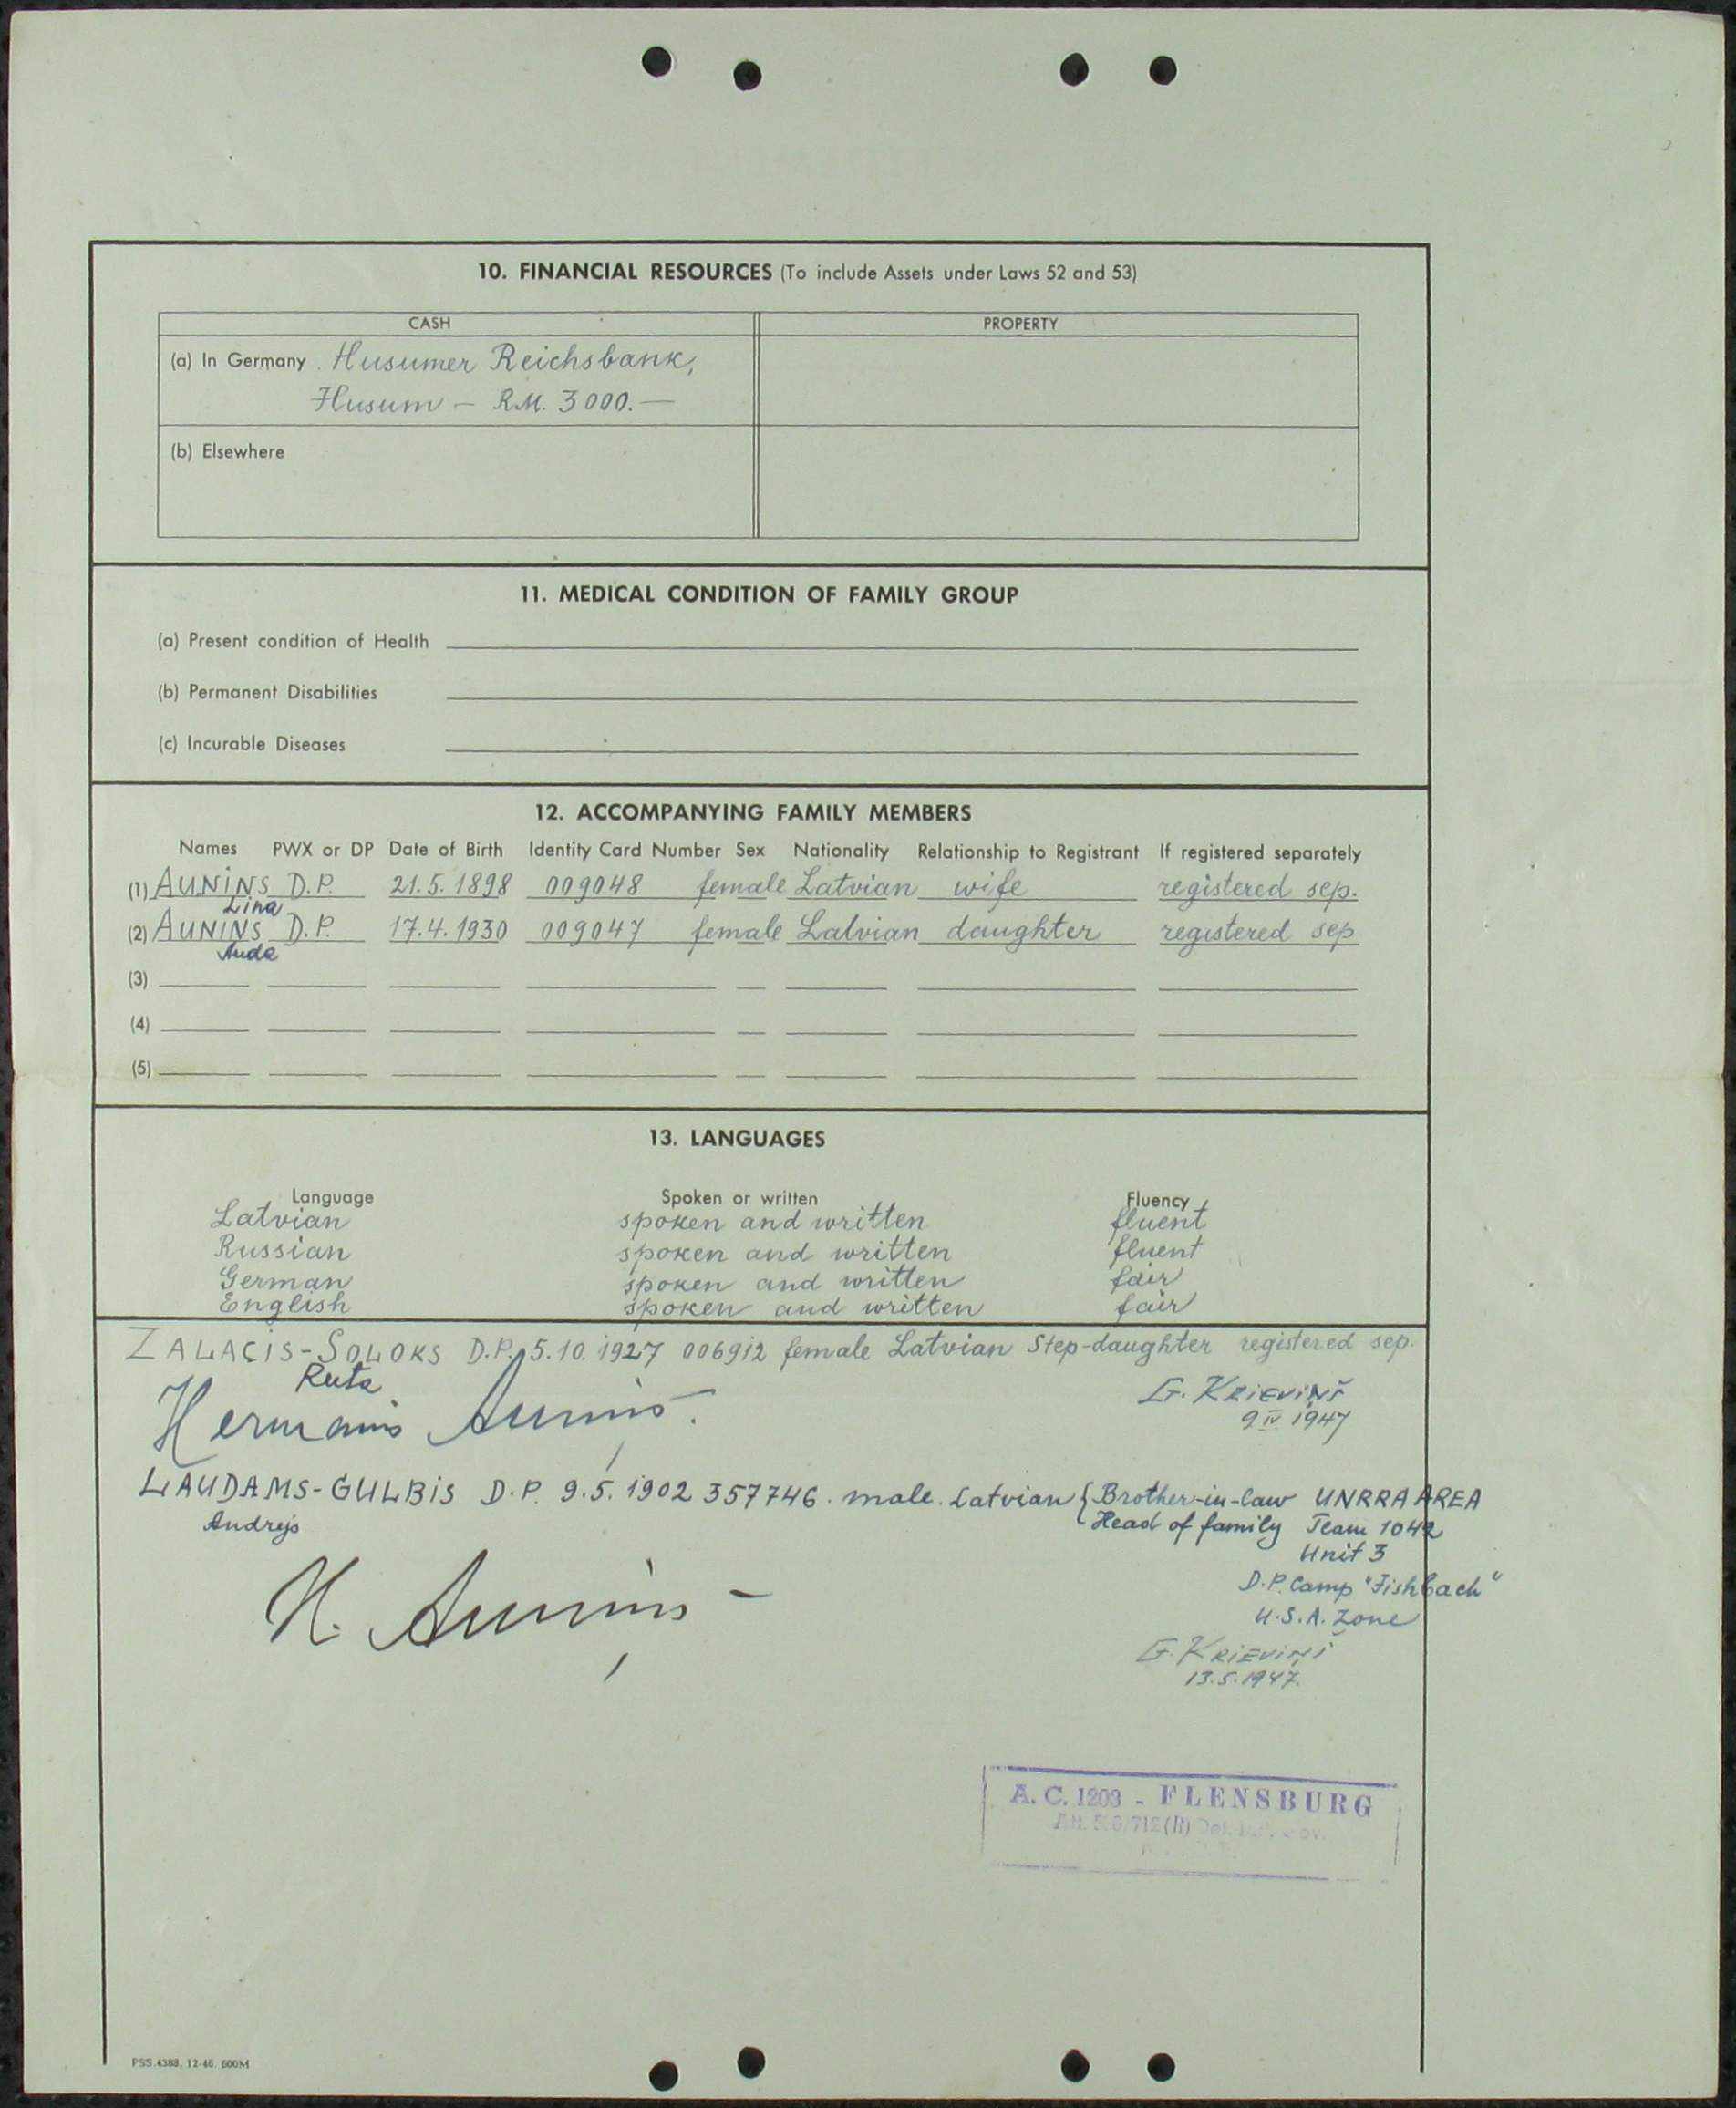 10. FINANCIAL RESOURCES (To include Assets under Laws 52 and 53)
CASH PROPERTY
(a) In Germany Husumer Reichsbank,
Husum — RM. 3000.—
(b) Elsewhere
11. MEDICAL CONDITION OF FAMILY GROUP
(a) Present condition of Health
(b) Permanent Disabilities
(c) Incurable Diseases
12. ACCOMPANYING FAMILY MEMBERS
Names PWX or DP Date of Birth Identity Card Number Sex Nationality Relationship to Registrant If registered separately
(1) AUNINS D.P. 21.5.1898 009048 female Latvian wife registered sep.
Lina
(2) AUNINS D.P. 17.4.1930 009047 female Latvian daughter registered sep
Auda
(3)
(4)
(5)
13. LANGUAGES
Language Spoken or written Fluency
Latvian spoken and written fluent
Russian spoken and written fluent
German spoken and written fair
English spoken and written fair
ZALACIS-SOLOKS D.P. 5.10.1927 006912 female Latvian Step-daughter registered sep.
Ruta
Hermanis Aunins. G. KRIEVIŅŠ
9 IV 1947
LAUDAMS-GULBIS D.P. 9.5.1902 357746. male. Latvian { Brother-in-law UNRRA AREA
Andrejs Head of family Team 1042
Unit 3
D.P. Camp "Fishbach"
U.S.A. Zone
H. Aunins
G. KRIEVIŅŠ
13.5.1947.
A. C. 1203 - FLENSBURG
PSS 4388. 12-46. 600M